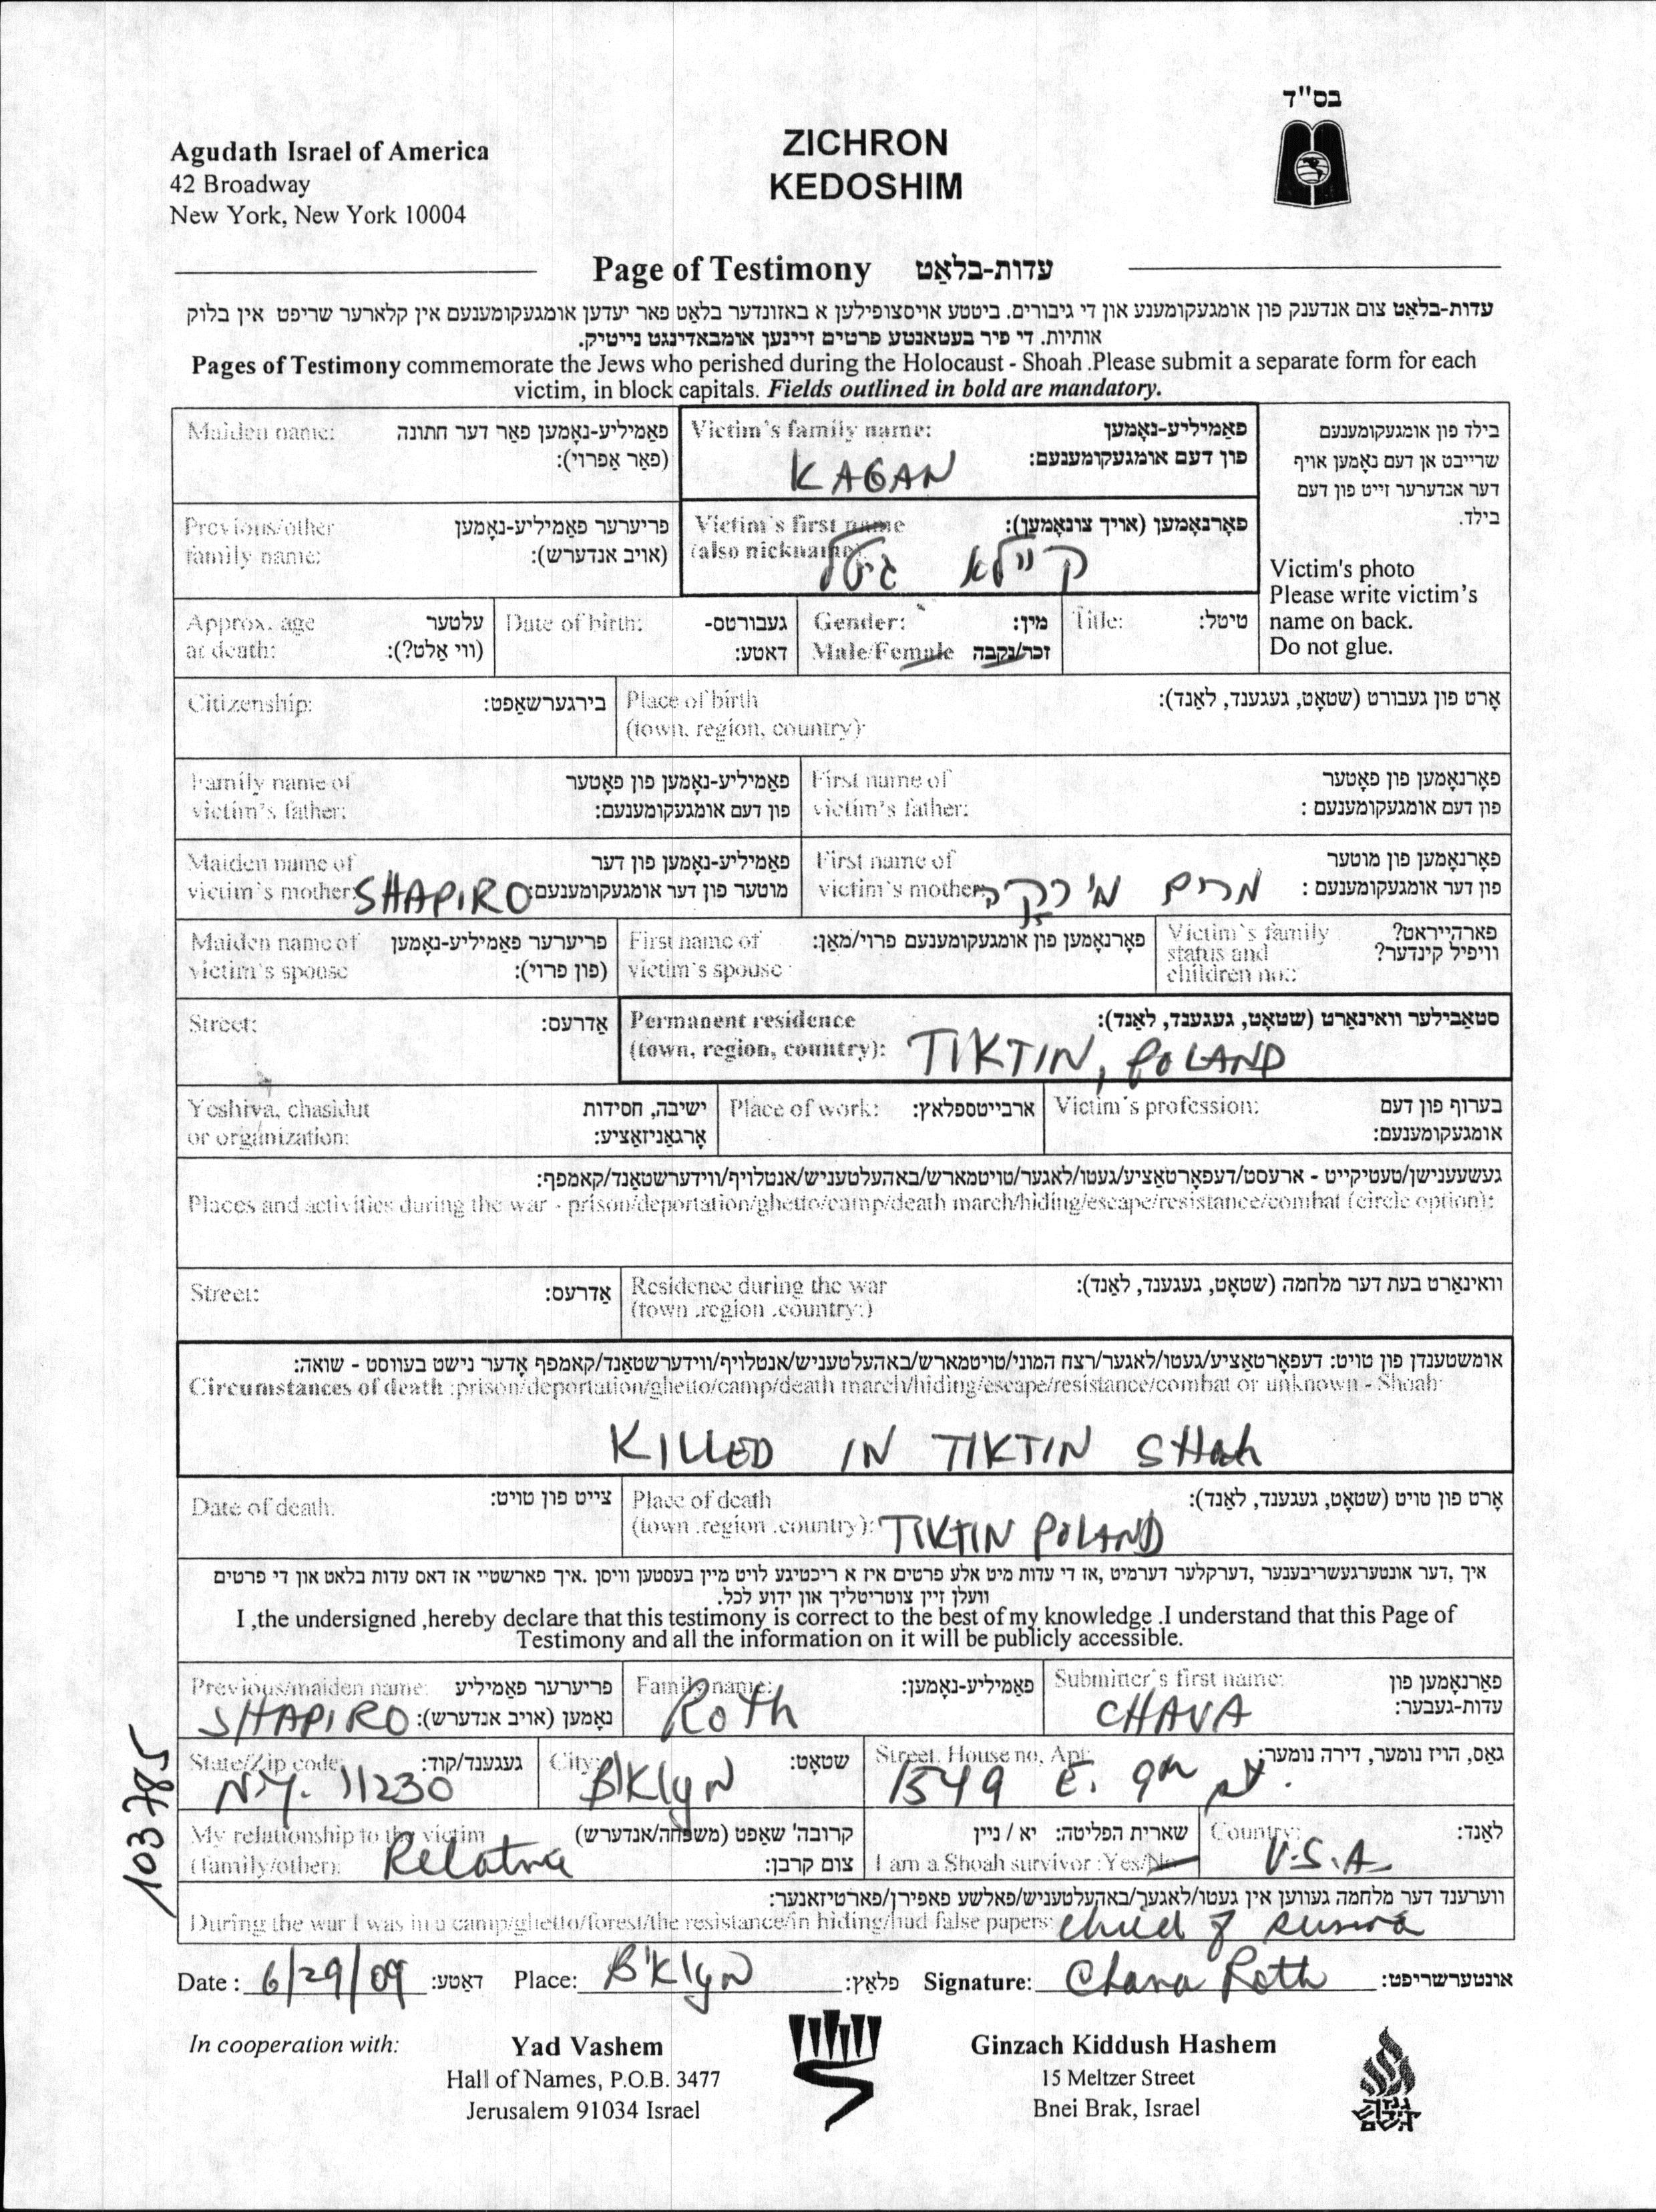 בס"ד
Agudath Israel of America
42 Broadway
New York, New York 10004
ZICHRON
KEDOSHIM
Page of Testimony עדות-בלאַט
עדות-בלאַט צום אנדענק פון אומגעקומענע און די גיבורים. ביטטע אויסצופילען א באזונדער בלאַט פאר יעדען אומגעקומענעם אין קלארער שריפט אין בלוק
אותיות. די פיר בעטאנטע פרטים זיינען אומבאדינגט נייטיק.
Pages of Testimony commemorate the Jews who perished during the Holocaust - Shoah .Please submit a separate form for each
victim, in block capitals. Fields outlined in bold are mandatory.
Maiden name: פאַמיליע-נאָמען פאַר דער חתונה
(פאַר אַפרוי):
Victim's family name: פאַמיליע-נאָמען
פון דעם אומגעקומענעם:
KAGAN
בילד פון אומגעקומענעם
שרייבט אן דעם נאָמען אויף
דער אנדערער זייט פון דעם
בילד.
Victim's photo
Please write victim's
name on back.
Do not glue.
Previous/other פריערער פאַמיליע-נאָמען
family name: (אויב אנדערש):
Victim's first name פאָרנאָמען (אויך צונאָמען):
(also nickname):
קיילא גיטל
Approx. age עלטער
at death: (ווי אַלט?):
Date of birth: געבורטס-
דאטע:
Gender: מין:
Male/Female זכר/נקבה
Title: טיטל:
Citizenship: בירגערשאַפט:
Place of birth אָרט פון געבורט (שטאָט, געגענד, לאַנד):
(town, region, country):
Family name of פאַמיליע-נאָמען פון פאָטער
victim's father: פון דעם אומגעקומענעם:
First name of פאָרנאָמען פון פאָטער
victim's father: פון דעם אומגעקומענעם :
Maiden name of פאַמיליע-נאָמען פון דער
victim's mother: SHAPIRO מוטער פון דער אומגעקומענעם:
First name of פאָרנאָמען פון מוטער
victim's mother: מרים פון דער אומגעקומענעם :
Maiden name of פריערער פאַמיליע-נאָמען
victim's spouse (פון פרוי):
First name of פאָרנאָמען פון אומגעקומענעם פרוי/מאַן:
victim's spouse :
Victim's family פארהייראט?
status and וויפיל קינדער?
children no.:
Street: אַדרעס:
Permanent residence סטאַבילער וואוינאַרט (שטאָט, געגענד, לאַנד):
(town, region, country): TIKTIN, POLAND
Yeshiva, chasidut ישיבה, חסידות
or organization: אָרגאַניזאַציע:
Place of work: ארבייטספלאץ:
Victim's profession: בערוף פון דעם
אומגעקומענעם:
געשעענישן/טעטיקייט - ארעסט/דעפאָרטאַציע/געטו/לאגער/טויטמארש/באהעלטעניש/אנטלויף/ווידערשטאַנד/קאמפף:
Places and activities during the war - prison/deportation/ghetto/camp/death march/hiding/escape/resistance/combat (circle option):
Street: אַדרעס:
Residence during the war וואוינאַרט בעת דער מלחמה (שטאָט, געגענד, לאַנד):
(town .region .country:)
אומשטענדן פון טויט: דעפאָרטאַציע/געטו/לאגער/רצח המוני/טויטמארש/באהעלטעניש/אנטלויף/ווידערשטאַנד/קאמפף אָדער נישט בעוווסט - שואה:
Circumstances of death :prison/deportation/ghetto/camp/death march/hiding/escape/resistance/combat or unknown - Shoah:
KILLED IN TIKTIN SHoah
Date of death: צייט פון טויט:
Place of death אָרט פון טויט (שטאָט, געגענד, לאַנד):
(town .region .country): TIKTIN POLAND
איך ,דער אונטערגעשריבענער ,דערקלער דערמיט ,אז די עדות מיט אלע פרטים איז א ריכטיגע לויט מיין בעסטען וויסן .איך פארשטיי אז דאס עדות בלאט און די פרטים
וועלן זיין צוטריטליך און ידוע לכל.
I ,the undersigned ,hereby declare that this testimony is correct to the best of my knowledge .I understand that this Page of
Testimony and all the information on it will be publicly accessible.
Previous/maiden name: פריערער פאַמיליע
SHAPIRO נאָמען (אויב אנדערש):
Family name: פאַמיליע-נאָמען:
Roth
Submitter's first name: פאָרנאָמען פון
עדות-געבער:
CHAVA
State/Zip code: געגענד/קוד:
N.Y. 11230
City: שטאָט:
B'klyn
Street, House no, Apt: גאַס, הויז נומער, דירה נומער:
1549 E. 9th St.
My relationship to the victim קרובה' שאַפט (משפחה/אנדערש)
(family/other): Relative צום קרבן:
שארית הפליטה: יא / ניין
I am a Shoah survivor :Yes/No
Country: לאַנד:
U.S.A.
ווערענד דער מלחמה געווען אין געטו/לאגער/באהעלטעניש/פאלשע פאפירן/פארטיזאנער:
During the war I was in a camp/ghetto/forest/the resistance/in hiding/had false papers: child of
Date : 6/29/09 דאַטע: Place: B'klyn פלאַץ: Signature: Chava Roth אונטערשריפט:
103785
In cooperation with:
Yad Vashem
Hall of Names, P.O.B. 3477
Jerusalem 91034 Israel
Ginzach Kiddush Hashem
15 Meltzer Street
Bnei Brak, Israel